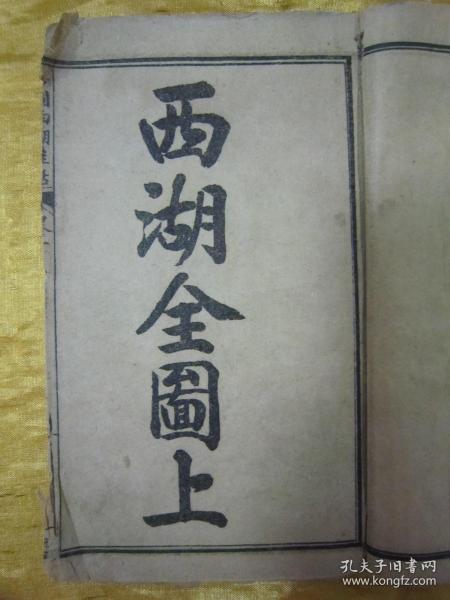 西湖全圖上
西湖佳話
孔夫子旧书网
www.kongfz.com